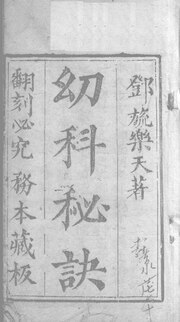 鄧旒樂天著
幼科秘訣
翻刻必究 務本藏板